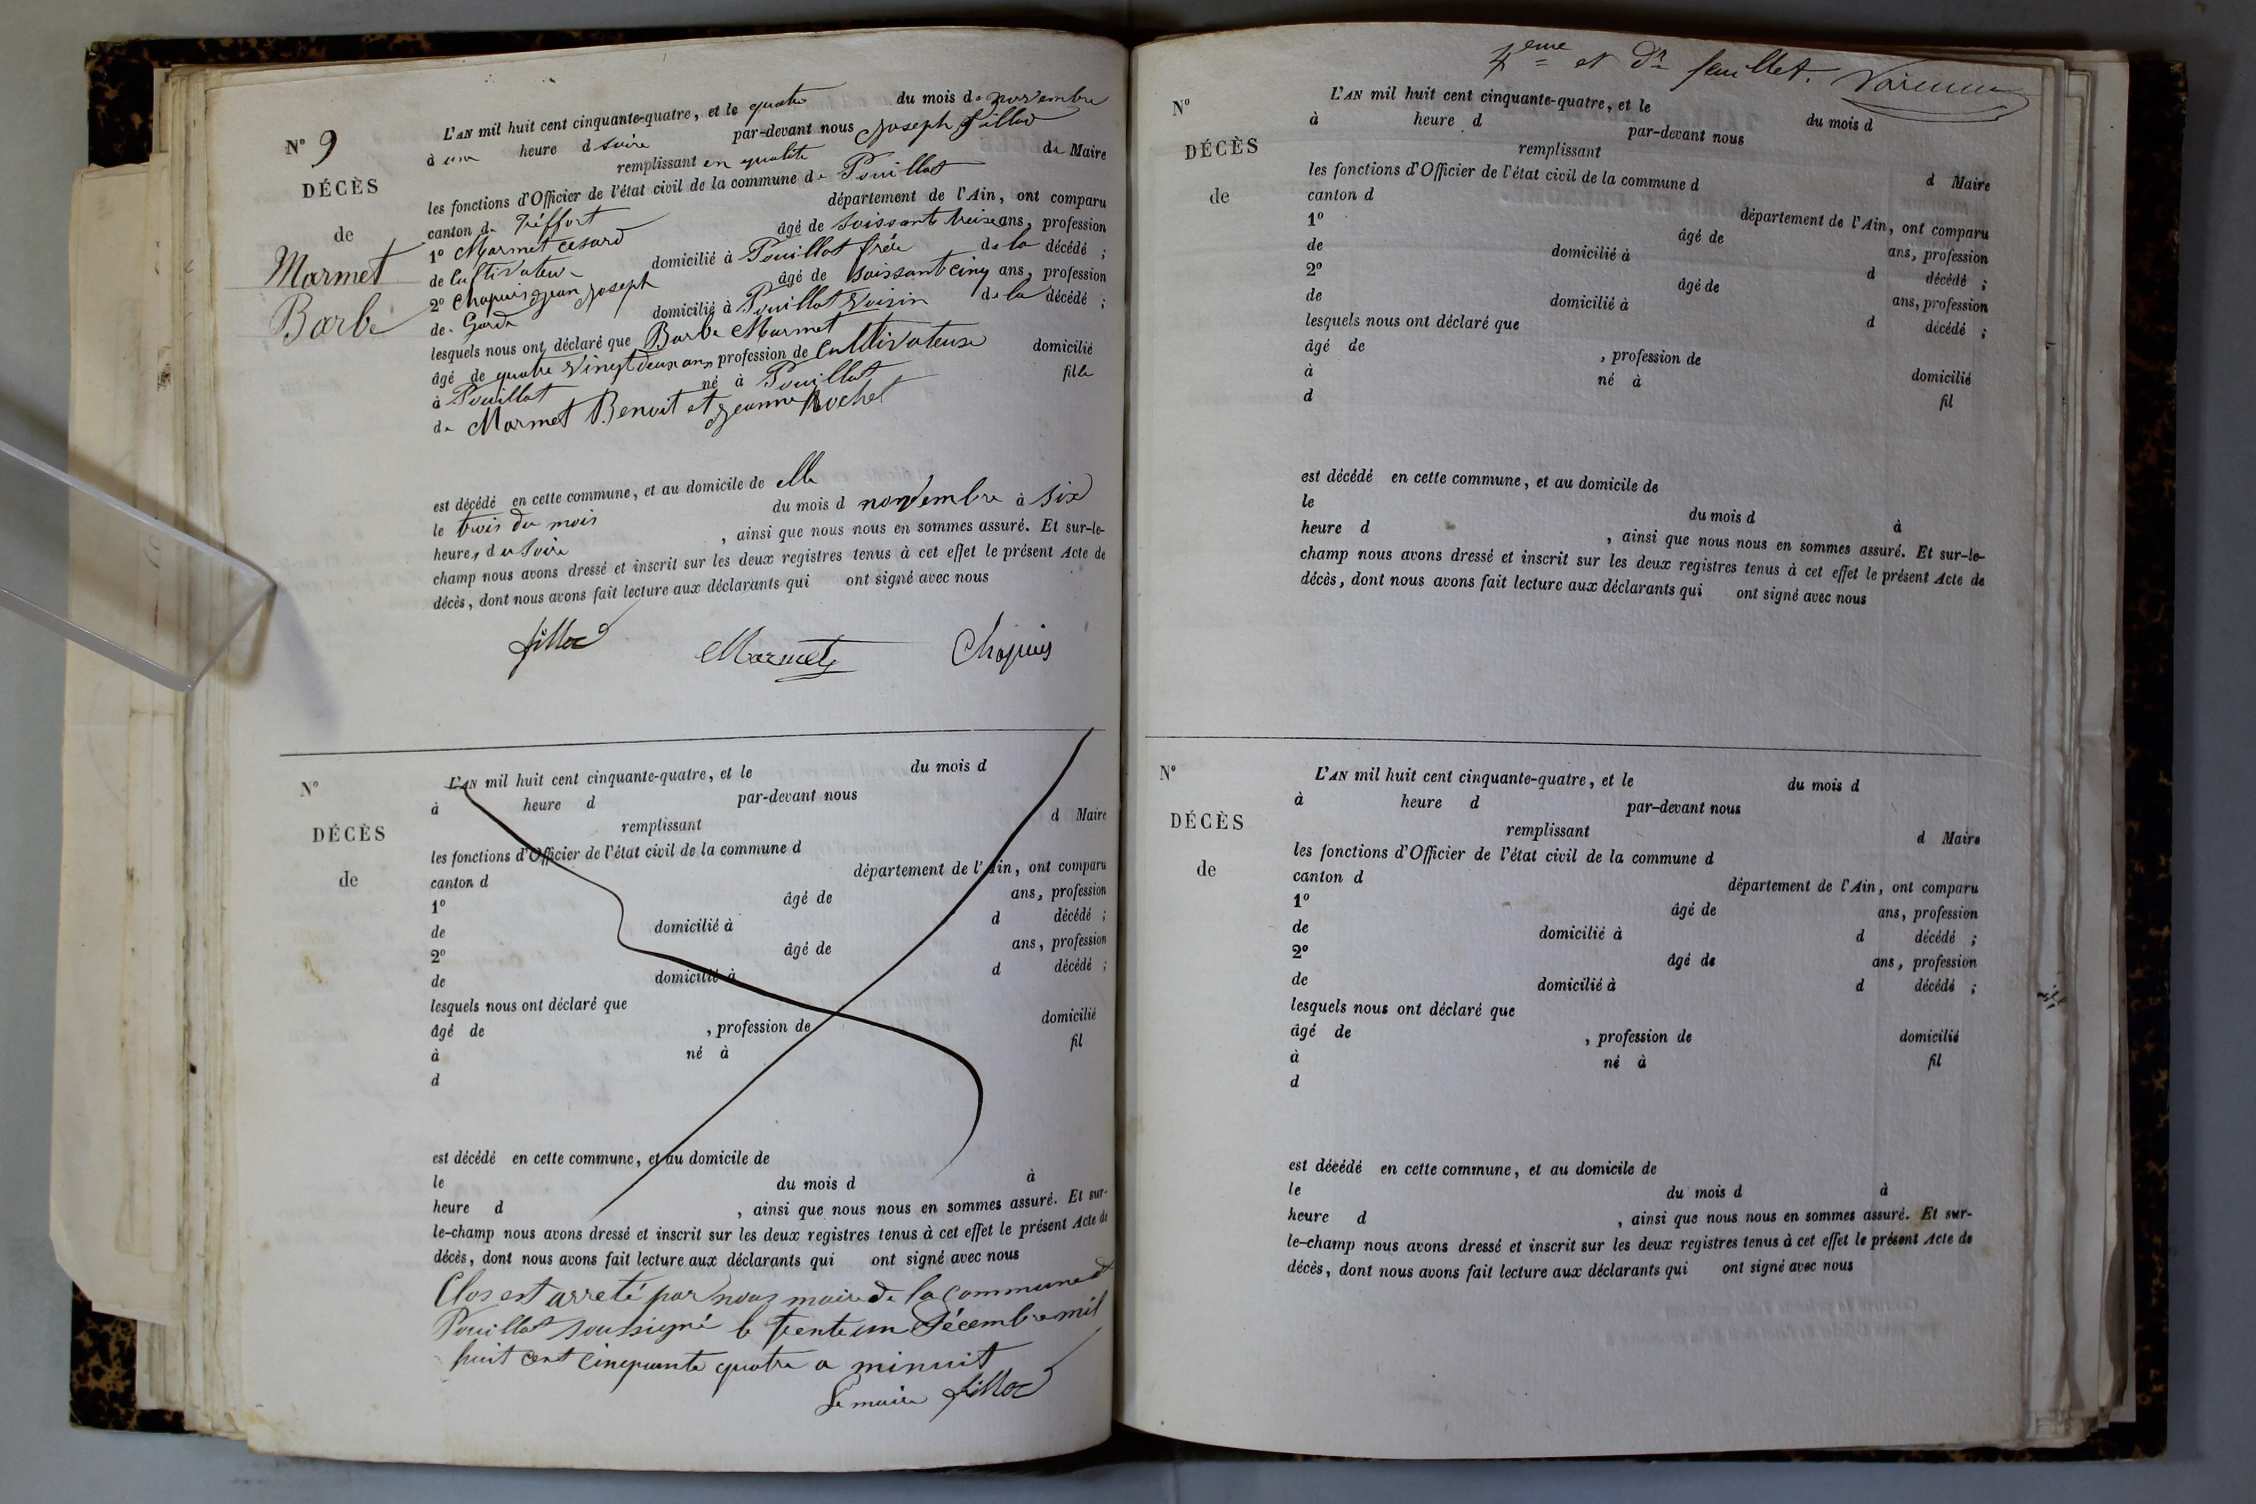 N° 9
DÉCÈS
de
Marmet
Barbe
L'AN mil huit cent cinquante-quatre, et le quatre du mois de novembre
à une heure d soire par-devant nous Joseph fillod
remplissant en qualité de Maire
les fonctions d'Officier de l'état civil de la commune de Pouillat
canton de Tréffort département de l'Ain, ont comparu
1° Marmet Cesard âgé de soissante treize ans, profession
de Cultivateur domicilié à Pouillat frére de la décédé ;
2° Chapuis jean joseph âgé de soissant cinq ans, profession
de Garde domicilié à Pouillat voisin de la décédé ;
lesquels nous ont déclaré que Barbe Marmet
âgé de quatre vingt deux ans, profession de Cultivateuse domicilié
à Pouillat né à Pouillat fille
de Marmet Benoit et jeanne Rochet
est décédé en cette commune, et au domicile de elle
le trois du mois du mois d novembre à six
heures du soire , ainsi que nous nous en sommes assuré. Et sur-le-
champ nous avons dressé et inscrit sur les deux registres tenus à cet effet le présent Acte de
décès, dont nous avons fait lecture aux déclarants qui ont signé avec nous
fillod Marmet Chapuis
N°
DÉCÈS
de
L'AN mil huit cent cinquante-quatre, et le du mois d
à heure d par-devant nous
remplissant d Maire
les fonctions d'Officier de l'état civil de la commune d
canton d département de l'Ain, ont comparu
1° âgé de ans, profession
de domicilié à d décédé ;
2° âgé de ans, profession
de domicilié à d décédé ;
lesquels nous ont déclaré que
âgé de , profession de domicilié
à né à fil
d
est décédé en cette commune, et au domicile de
le du mois d à
heure d , ainsi que nous nous en sommes assuré. Et sur-
le-champ nous avons dressé et inscrit sur les deux registres tenus à cet effet le présent Acte de
décès, dont nous avons fait lecture aux déclarants qui ont signé avec nous
Clos est arreté par nous maire de la commune d
Pouillat soussigné le trente un Décembre mil
huit cent cinquante quatre a minuit
Le maire fillod
4eme et dr feuillet.
N°
DÉCÈS
de
L'AN mil huit cent cinquante-quatre, et le du mois d
à heure d par-devant nous
remplissant d Maire
les fonctions d'Officier de l'état civil de la commune d
canton d département de l'Ain, ont comparu
1° âgé de ans, profession
de domicilié à d décédé ;
2° âgé de ans, profession
de domicilié à d décédé ;
lesquels nous ont déclaré que
âgé de , profession de domicilié
à né à fil
d
est décédé en cette commune, et au domicile de
le du mois d à
heure d , ainsi que nous nous en sommes assuré. Et sur-le-
champ nous avons dressé et inscrit sur les deux registres tenus à cet effet le présent Acte de
décès, dont nous avons fait lecture aux déclarants qui ont signé avec nous
N°
DÉCÈS
de
L'AN mil huit cent cinquante-quatre, et le du mois d
à heure d par-devant nous
remplissant d Maire
les fonctions d'Officier de l'état civil de la commune d
canton d département de l'Ain, ont comparu
1° âgé de ans, profession
de domicilié à d décédé ;
2° âgé de ans, profession
de domicilié à d décédé ;
lesquels nous ont déclaré que
âgé de , profession de domicilié
à né à fil
d
est décédé en cette commune, et au domicile de
le du mois d à
heure d , ainsi que nous nous en sommes assuré. Et sur-
le-champ nous avons dressé et inscrit sur les deux registres tenus à cet effet le présent Acte de
décès, dont nous avons fait lecture aux déclarants qui ont signé avec nous